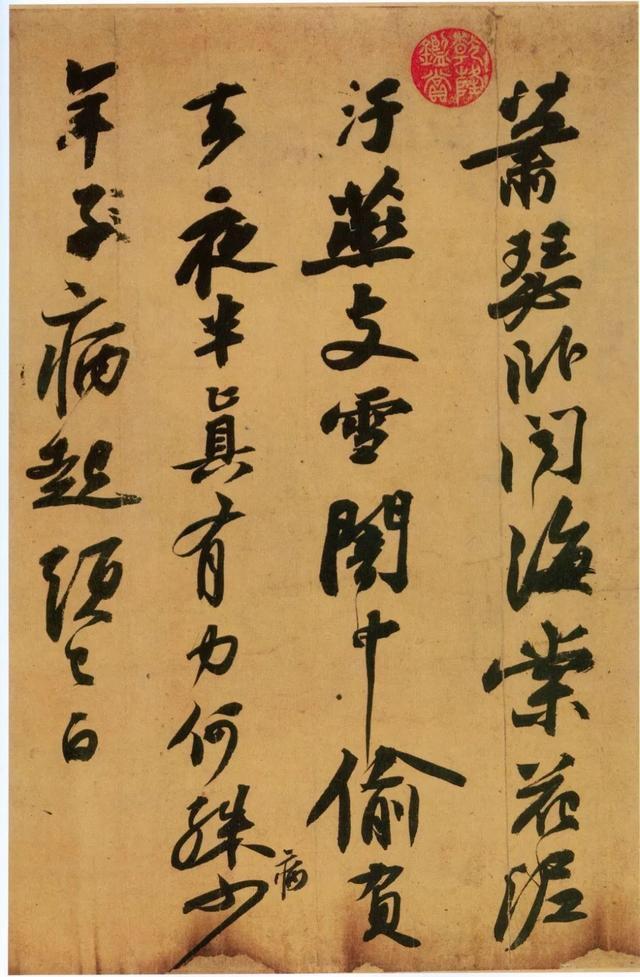 乾隆鑑賞
蕭瑟臥聞海棠花泥
汙燕支雪闇中偷負
去夜半真有力何殊病少
年子病起頭已白